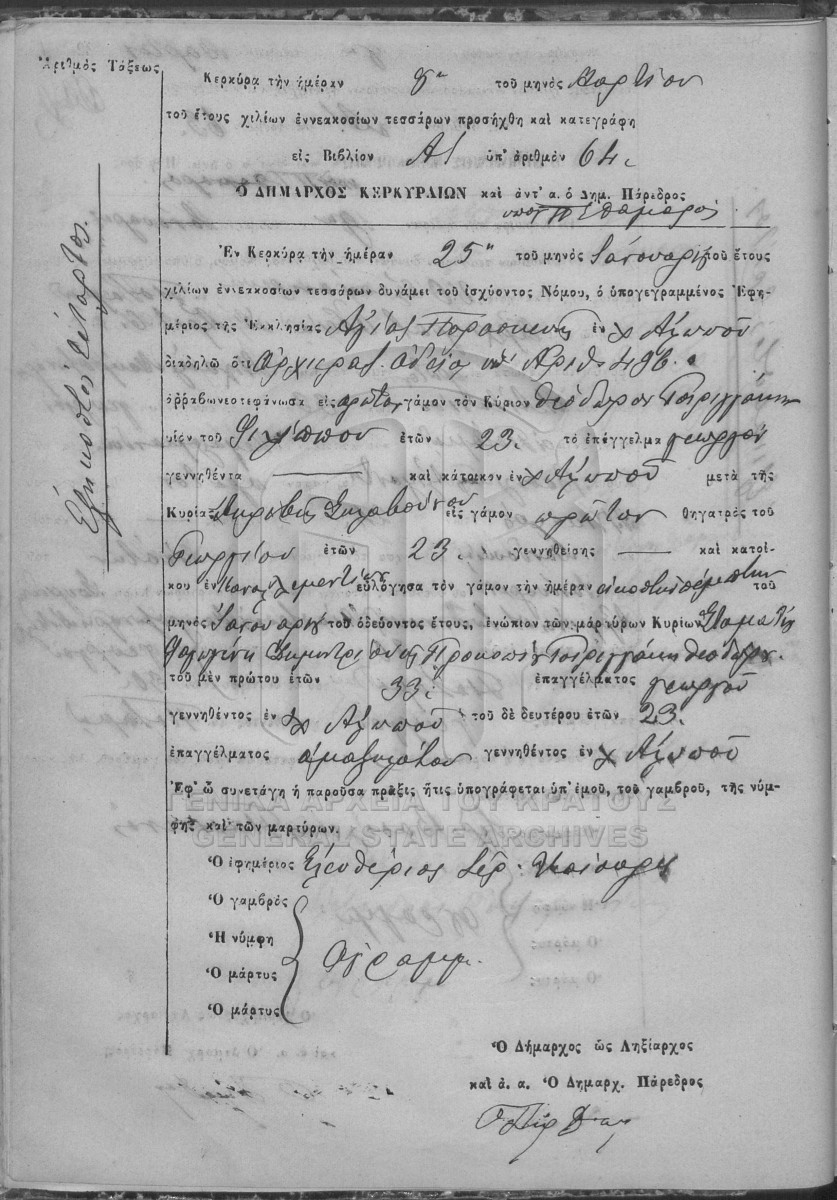 Ἀριθμὸς Τάξεως
Ἑξηκοστὸς τέταρτος
Κερκύρα τὴν ἡμέραν 8η τοῦ μηνὸς Μαρτίου
τοῦ ἔτους χιλίων ἐννεακοσίων τεσσάρων προσήχθη καὶ κατεγράφη
εἰς Βιβλίον Α! ὑπ' ἀριθμὸν 64.
Ὁ ΔΗΜΑΡΧΟΣ ΚΕΡΚΥΡΑΙΩΝ καὶ ἀντ' α. ὁ Δημ. Πάρεδρος
Ἐν Κερκύρα τὴν ἡμέραν 25η τοῦ μηνὸς Ἰανουαρίου τοῦ ἔτους
χιλίων ἐννεακοσίων τεσσάρων δυνάμει τοῦ ἰσχύοντος Νόμου, ὁ ὑπογεγραμμένος Ἐφη-
μέριος τῆς Ἐκκλησίας Ἁγίας Παρασκευῆς ἐν χ Ἀλυποῦ
διαδηλῶ ὅτι Ἀρχιερατ. ἀδεία ὑπ' Ἀριθ. 498.
ἀῤῥαβωνεοτεφάνωσα εἰς πρῶτον γάμον τὸν Κύριον Θεόδωρον Τσιριγγάκην
υἱὸν τοῦ Φιλίππου ἐτῶν 23. τὸ ἐπάγγελμα γεωργὸν
γεννηθέντα καὶ κάτοικον ἐν χ Ἀλυποῦ μετὰ τῆς
Κυρίας εἰς γάμον πρῶτον θηγατρὸς τοῦ
Γεωργίου ἐτῶν 23. γεννηθείσης καὶ κατοί-
κου ἐν εὐλόγησα τὸν γάμον τὴν ἡμέραν εἰκοστὴν πέμπτην τοῦ
μηνὸς Ἰανουαρίου τοῦ ὁδεύοντος ἔτους, ἐνώπιον τῶν μάρτύρων Κυρίων Σταμάτιον
Δημητρίου Προκοπίου Τσιριγγάκη Θεοδώρου.
τοῦ μὲν πρώτου ἐτῶν 33. ἐπαγγέλματος γεωργοῦ
γεννηθέντος ἐν χ Ἀλυποῦ τοῦ δὲ δευτέρου ἐτῶν 23.
ἐπαγγέλματος ἁμαξηλάτου γεννηθέντος ἐν χ Ἀλυποῦ
Ἐφ' ᾧ συνετάγη ἡ παροῦσα πρᾶξις ἥτις ὑπογράφεται ὑπ' ἐμοῦ, τοῦ γαμβροῦ, τῆς νύμ-
φης καὶ τῶν μαρτύρων.
ΓΕΝΙΚΑ ΑΡΧΕΙΑ ΤΟΥ ΚΡΑΤΟΥΣ
GENERAL STATE ARCHIVES
Ὁ ἐφημέριος Ἐλευθέριος Ἱερ.
Ὁ γαμβρὸς
Ἡ νύμφη
Ὁ μάρτυς
Ὁ μάρτυς
Ἀγράμμ.
Ὁ Δήμαρχος ὡς Ληξίαρχος
καὶ ἀ. α. Ὁ Δημαρχ. Πάρεδρος